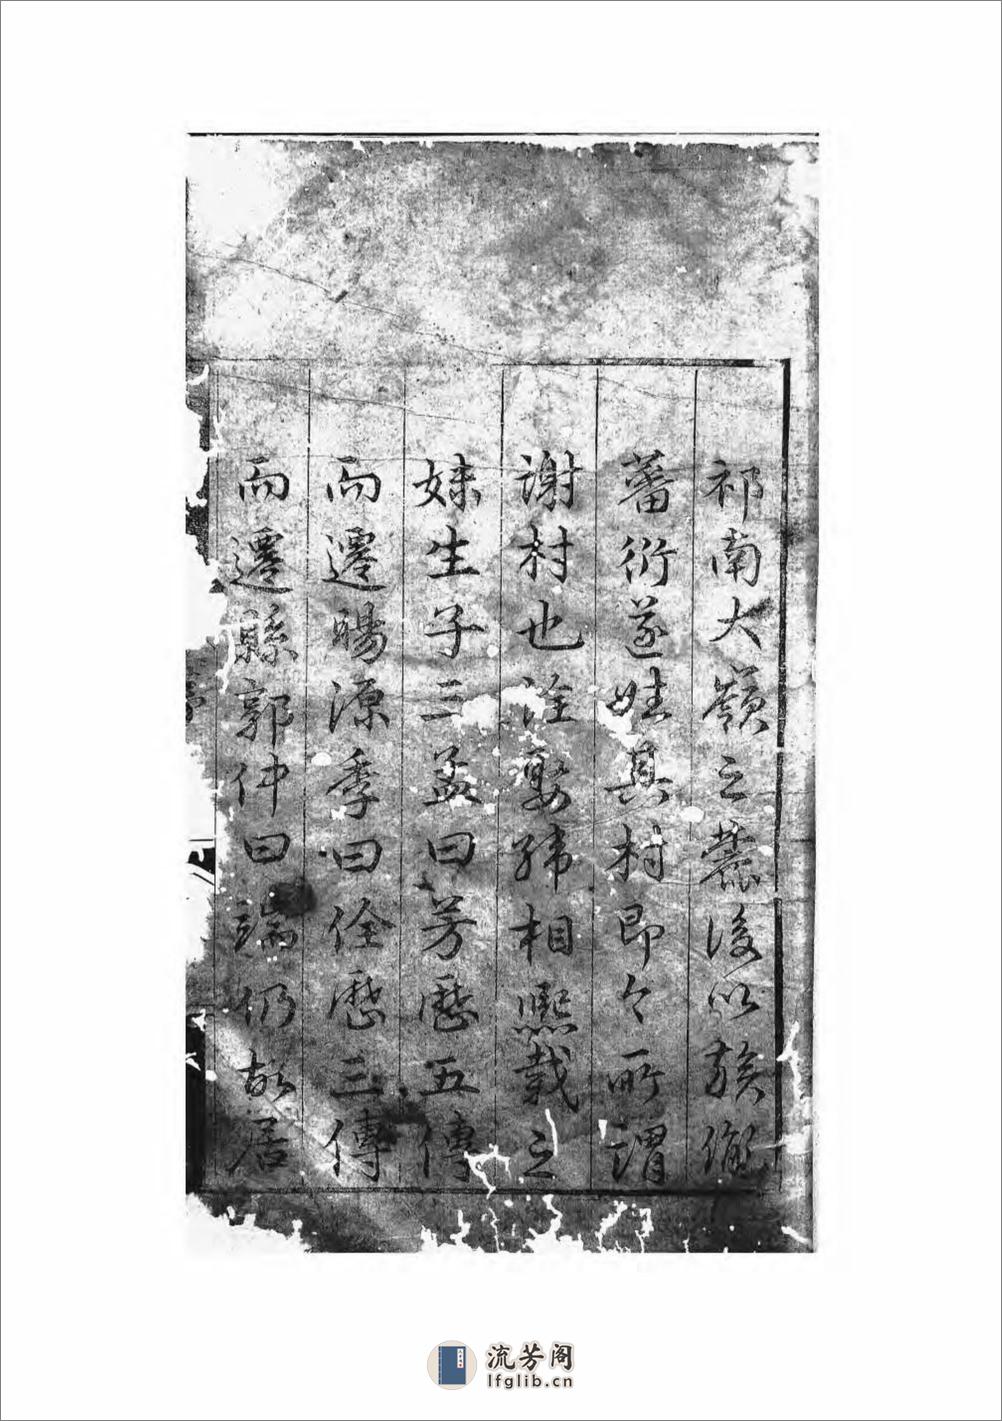 祁南大嶺之麓後以族繁
蕃衍遂姓其村即今所謂
謝村也詮娶韓相熙載之
妹生子三孟曰芳歷五傳
而遷暘源季曰佺歷三傳
而遷縣郭仲曰端仍故居
流芳阁
lfglib.cn